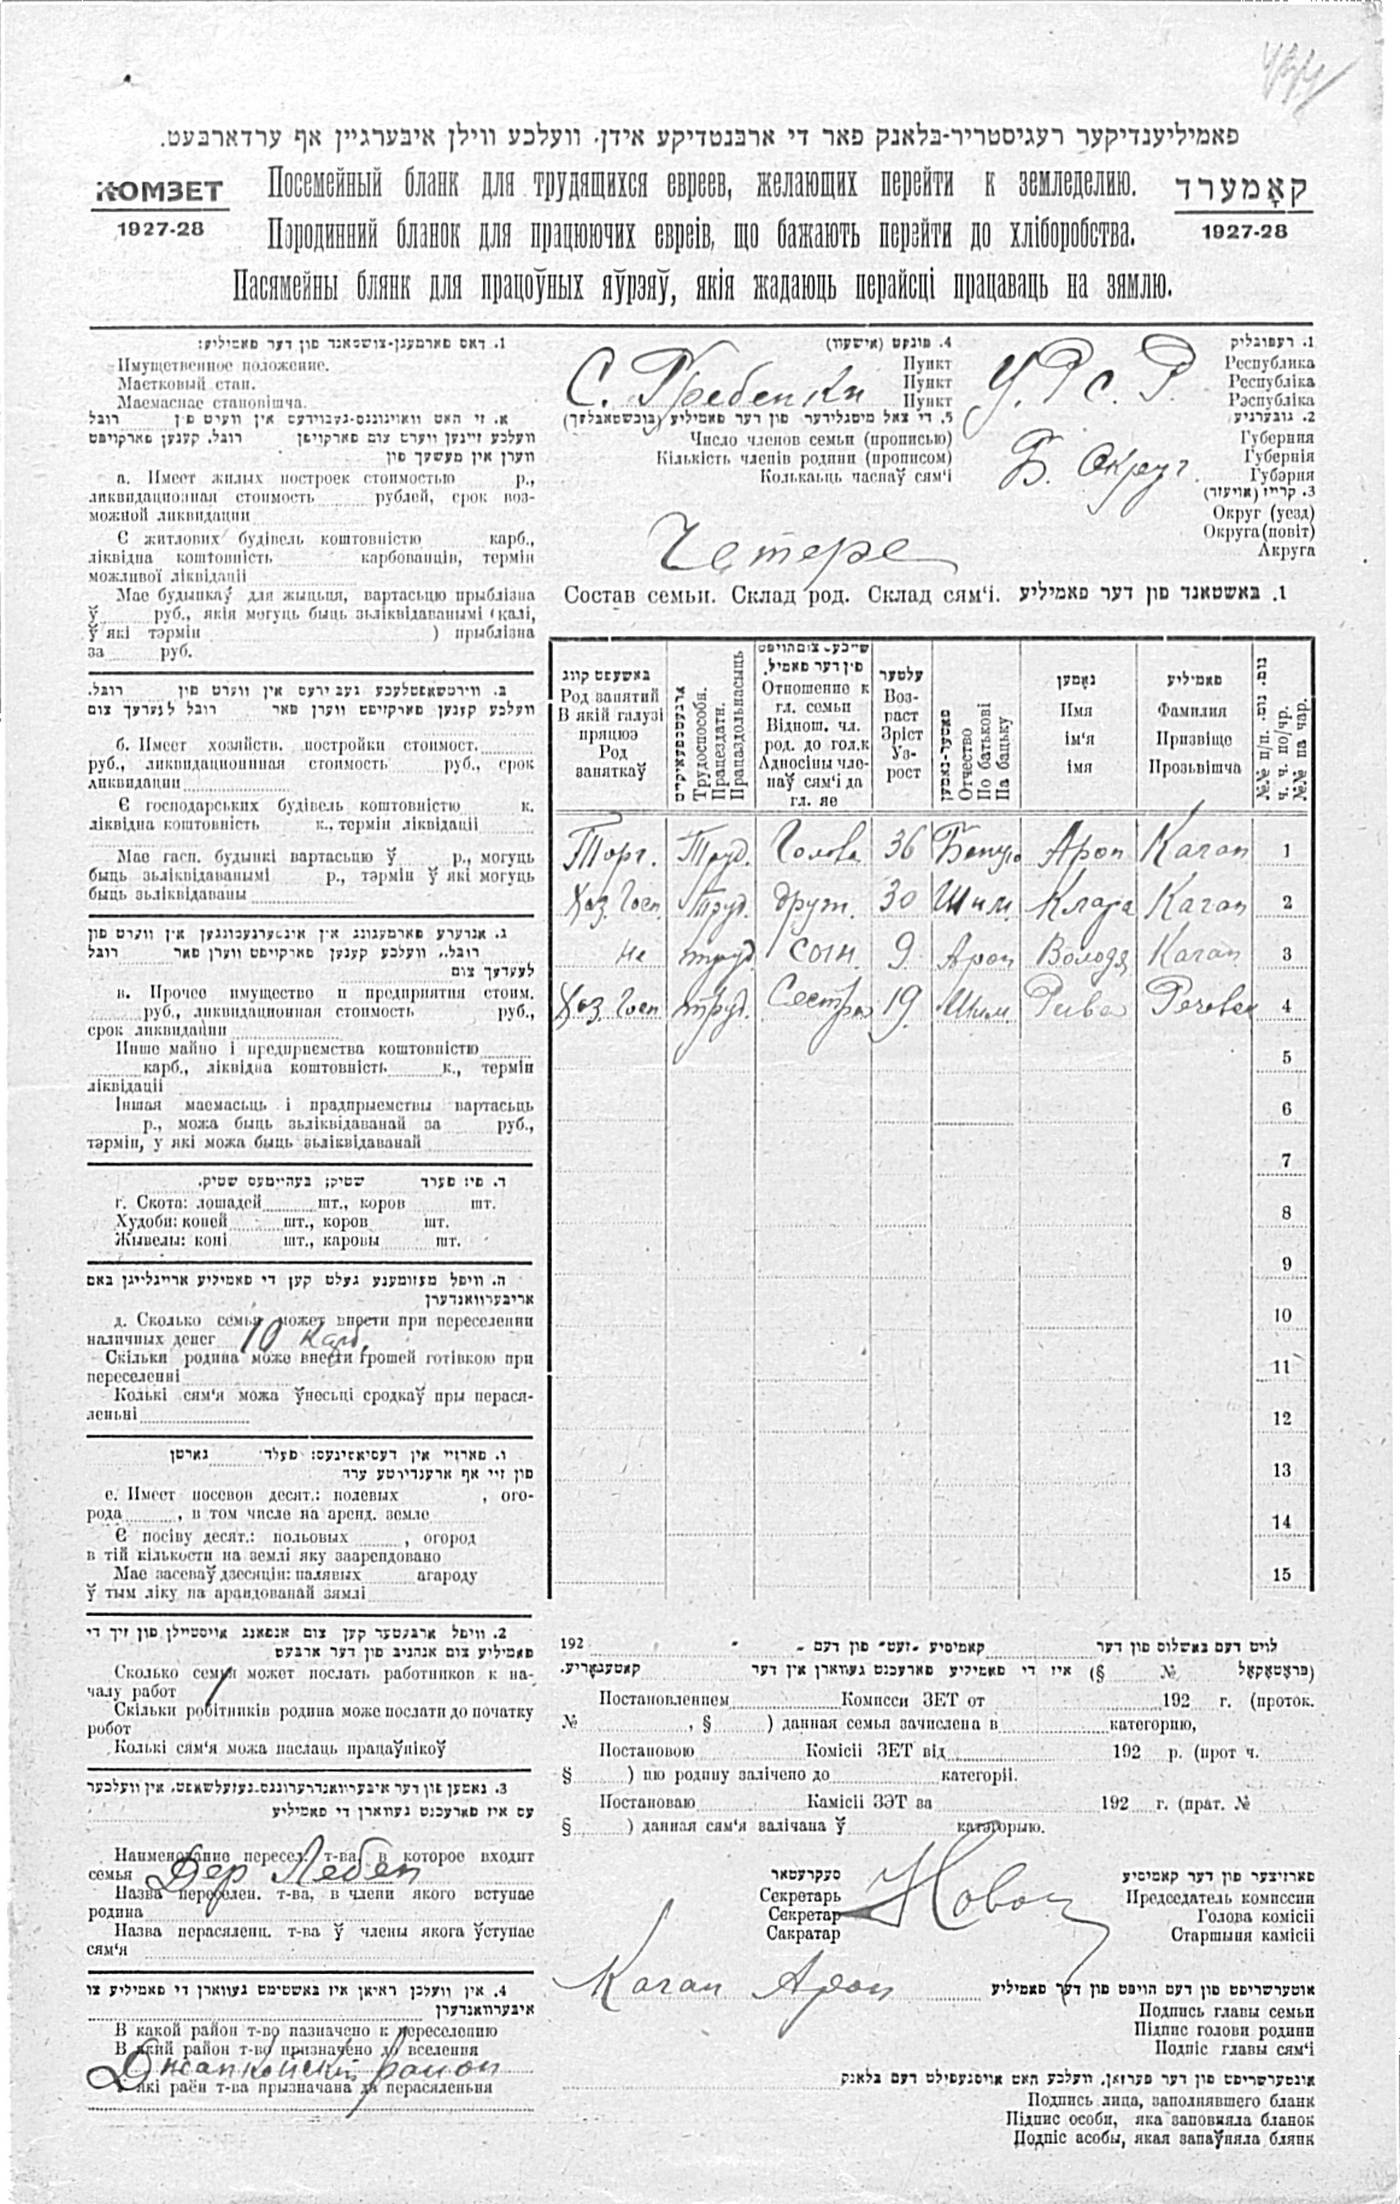 פאמיליענדיקער רעגיסטריר-בלאנק פאר די ארבנטדיקע אידן, וועלכע ווילן איבערגיין אף ערדארבעט.
КОМЗЕТ
1927-28
Посемейный бланк для трудящихся евреев, желающих перейти к земледелию.
Породинний бланок для працюючих евреів, що бажають перейти до хліборобства.
Пасямейны блянк для працоўных яўрэяў, якія жадаюць перайсці працаваць на зямлю.
קאָמערד
1927-28
1. דאס פארמעגן-צושטאנד פון דער פאמיליע:
Имущественное положение.
Маетковый стан.
Маемаснае становішча.
а. Имеет жилых построек стоимостью р.,
ликвидационная стоимость рублей, срок воз-
можной ликвидации
Є житлових будівель коштовністю карб.,
ліквідна коштовність карбованців, термін
можливої ліквідації
Мае будынкаў для жыцьця, вартасьцю прыблізна
ў руб., якія могуць быць зьліквідаванымі (калі,
ў які тэрмін ) прыблізна
за руб.
б. Имеет хозяйств. постройки стоимост.
руб., ликвидационная стоимость руб., срок
ликвидации
Є господарських будівель коштовністю к.
ліквідна коштовність к., термін ліквідації
Мае гасп. будынкі вартасьцю ў р., могуць
быць зьліквідаванымі р., тэрмін ў які могуць
быць зьліквідаваны
в. Прочее имущество и предприятия стоим.
руб., ликвидационная стоимость руб.,
срок ликвидации
Инше майно і предприємства коштовністю
карб., ліквідна коштовність к., термін
ліквідації
Іншая маемасьць і прадпрыемствы вартасьць
р., можа быць зьліквідаванай за руб.,
тэрмін, у які можа быць зьліквідаванай
ד. פי: פערד שטיק; בעהיימעס שטיק.
г. Скота: лошадей шт., коров шт.
Худоби: коней шт., коров шт.
Жывелы: коні шт., каровы шт.
ה. וויפל מעזומענע געלט קען די פאמיליע אריינלייגן באם
אריבערוואנדערן
д. Сколько семья может внести при переселении
наличных денег 10 карб.
Скільки родина може внести грошей готівкою при
переселенні
Колькі сям'я можа ўнесьці сродкаў пры перася-
леньні
е. Имеет посевов десят.: полевых , ого-
рода , в том числе на аренд. земле
Є посіву десят.: польових , огород
в тій кількости на землі яку заарендовано
Мае засеваў дзесяцін: палявых агароду
ў тым ліку на арандованай зямлі
2. וויפל ארבעטער קען צום אנפאנג אויסטיילן פון זיך די
פאמיליע צום אנהויב פון דער ארבעט
Сколько семья может послать работников к на-
чалу работ 1
Скільки робітників родина може послати до початку
робот
Колькі сям'я можа паслаць працаўнікоў
3. נאמען פון דער איבערוואנדערונגס-געזעלשאפט, אין וועלכער
עס איז פארעכנט געווארן די פאמיליע
Наименование пересел. т-ва, в которое входит
семья Дер Лебен
Назва переселен. т-ва, в члени якого вступае
родина
Назва перасяленц. т-ва ў члены якога ўступае
сям'я
4. אין וועלכן ראיאן איז באשטימט געווארן די פאמיליע צו
איבערוואנדערן
В какой район т-во назначено к переселению
В який район т-во призначено до вселення
Джанкойский район
У які раён т-ва прызначана да перасяленьня
4. פונקט (אישעוו)
Пункт
Пункт
Пункт
С. Гребенки
1. רעפובליק
Республика
Республіка
Рэспубліка
У. Р С. Р
2. גובערניע
Губерния
Губернія
Губэрня
Б. Округ.
3. קרייז (אויעזד)
Округ (уезд)
Округа (повіт)
Акруга
5. די צאל מיטגלידער פון דער פאמיליע (בוכשטאבלעך)
Число членов семьи (прописью)
Кількість членів родини (прописом)
Колькаьць часнаў сям'і
Четере
Состав семьи. Склад род. Склад сям'і. 1. באשטאנד פון דער פאמיליע
באשעפטיקונג
Род занятий
В якій галузі
працює
Род
заняткаў
Трудоспособн.
Працездатн.
Працаздольнасьць
Отношение к
гл. семьи
Віднош. чл.
род. до гол.к
Адносіны чле-
наў сям'і да
гл. яе
עלטער
Воз-
раст
Зріст
Уз-
рост
פאטער-נאמען
Отчество
По батькові
Па бацьку
נאמען
Имя
ім'я
імя
פאמיליע
Фамилия
Призвіще
Прозьвішча
№№ п/п.
ч. ч. по/чр.
№№ па чар.
Торг. Труд. Голова 36 Арон Каган 1
Хоз. Госп. Труд. друж. 30 Шим. Клара Каган 2
не труд. сын 9 Арон Володя Каган 3
Хоз. Госп. труд. Сестра 19 Шим. Рива 4
5
6
7
8
9
10
11
12
13
14
15
לויט דעם באשלוס פון דער קאמיסיע „זעט“ פון דעם 192
(פראָטאָקאָל № §) איז די פאמיליע פארעכנט געווארן אין דער קאטעגאָריע.
Постановлением Комисси ЗЕТ от 192 г. (проток.
№ , § ) данная семья зачислена в категорию,
Постановою Комісіі ЗЕТ від 192 р. (прот ч.
§ ) цю родину залічено до категоріі.
Постановаю Камісіі ЗЭТ за 192 г. (прат. №
§ ) данная сям'я залічана ў катэгорыю.
סעקרעטאר
Секретарь
Секретар
Сакратар
פארזיצער פון דער קאמיסיע
Председатель комиссии
Голова комісії
Старшыня камісіі
Каган Арон
אונטערשריפט פון דעם הויפט פון דער פאמיליע
Подпись главы семьи
Підпис голови родини
Подпіс главы сям'і
אונטערשריפט פון דער פערזאן, וועלכע האט אויסגעפילט דעם בלאנק
Подпись лица, заполнявшего бланк
Підпис особи, яка заповняла бланок
Подпіс асобы, якая запаўняла блянк